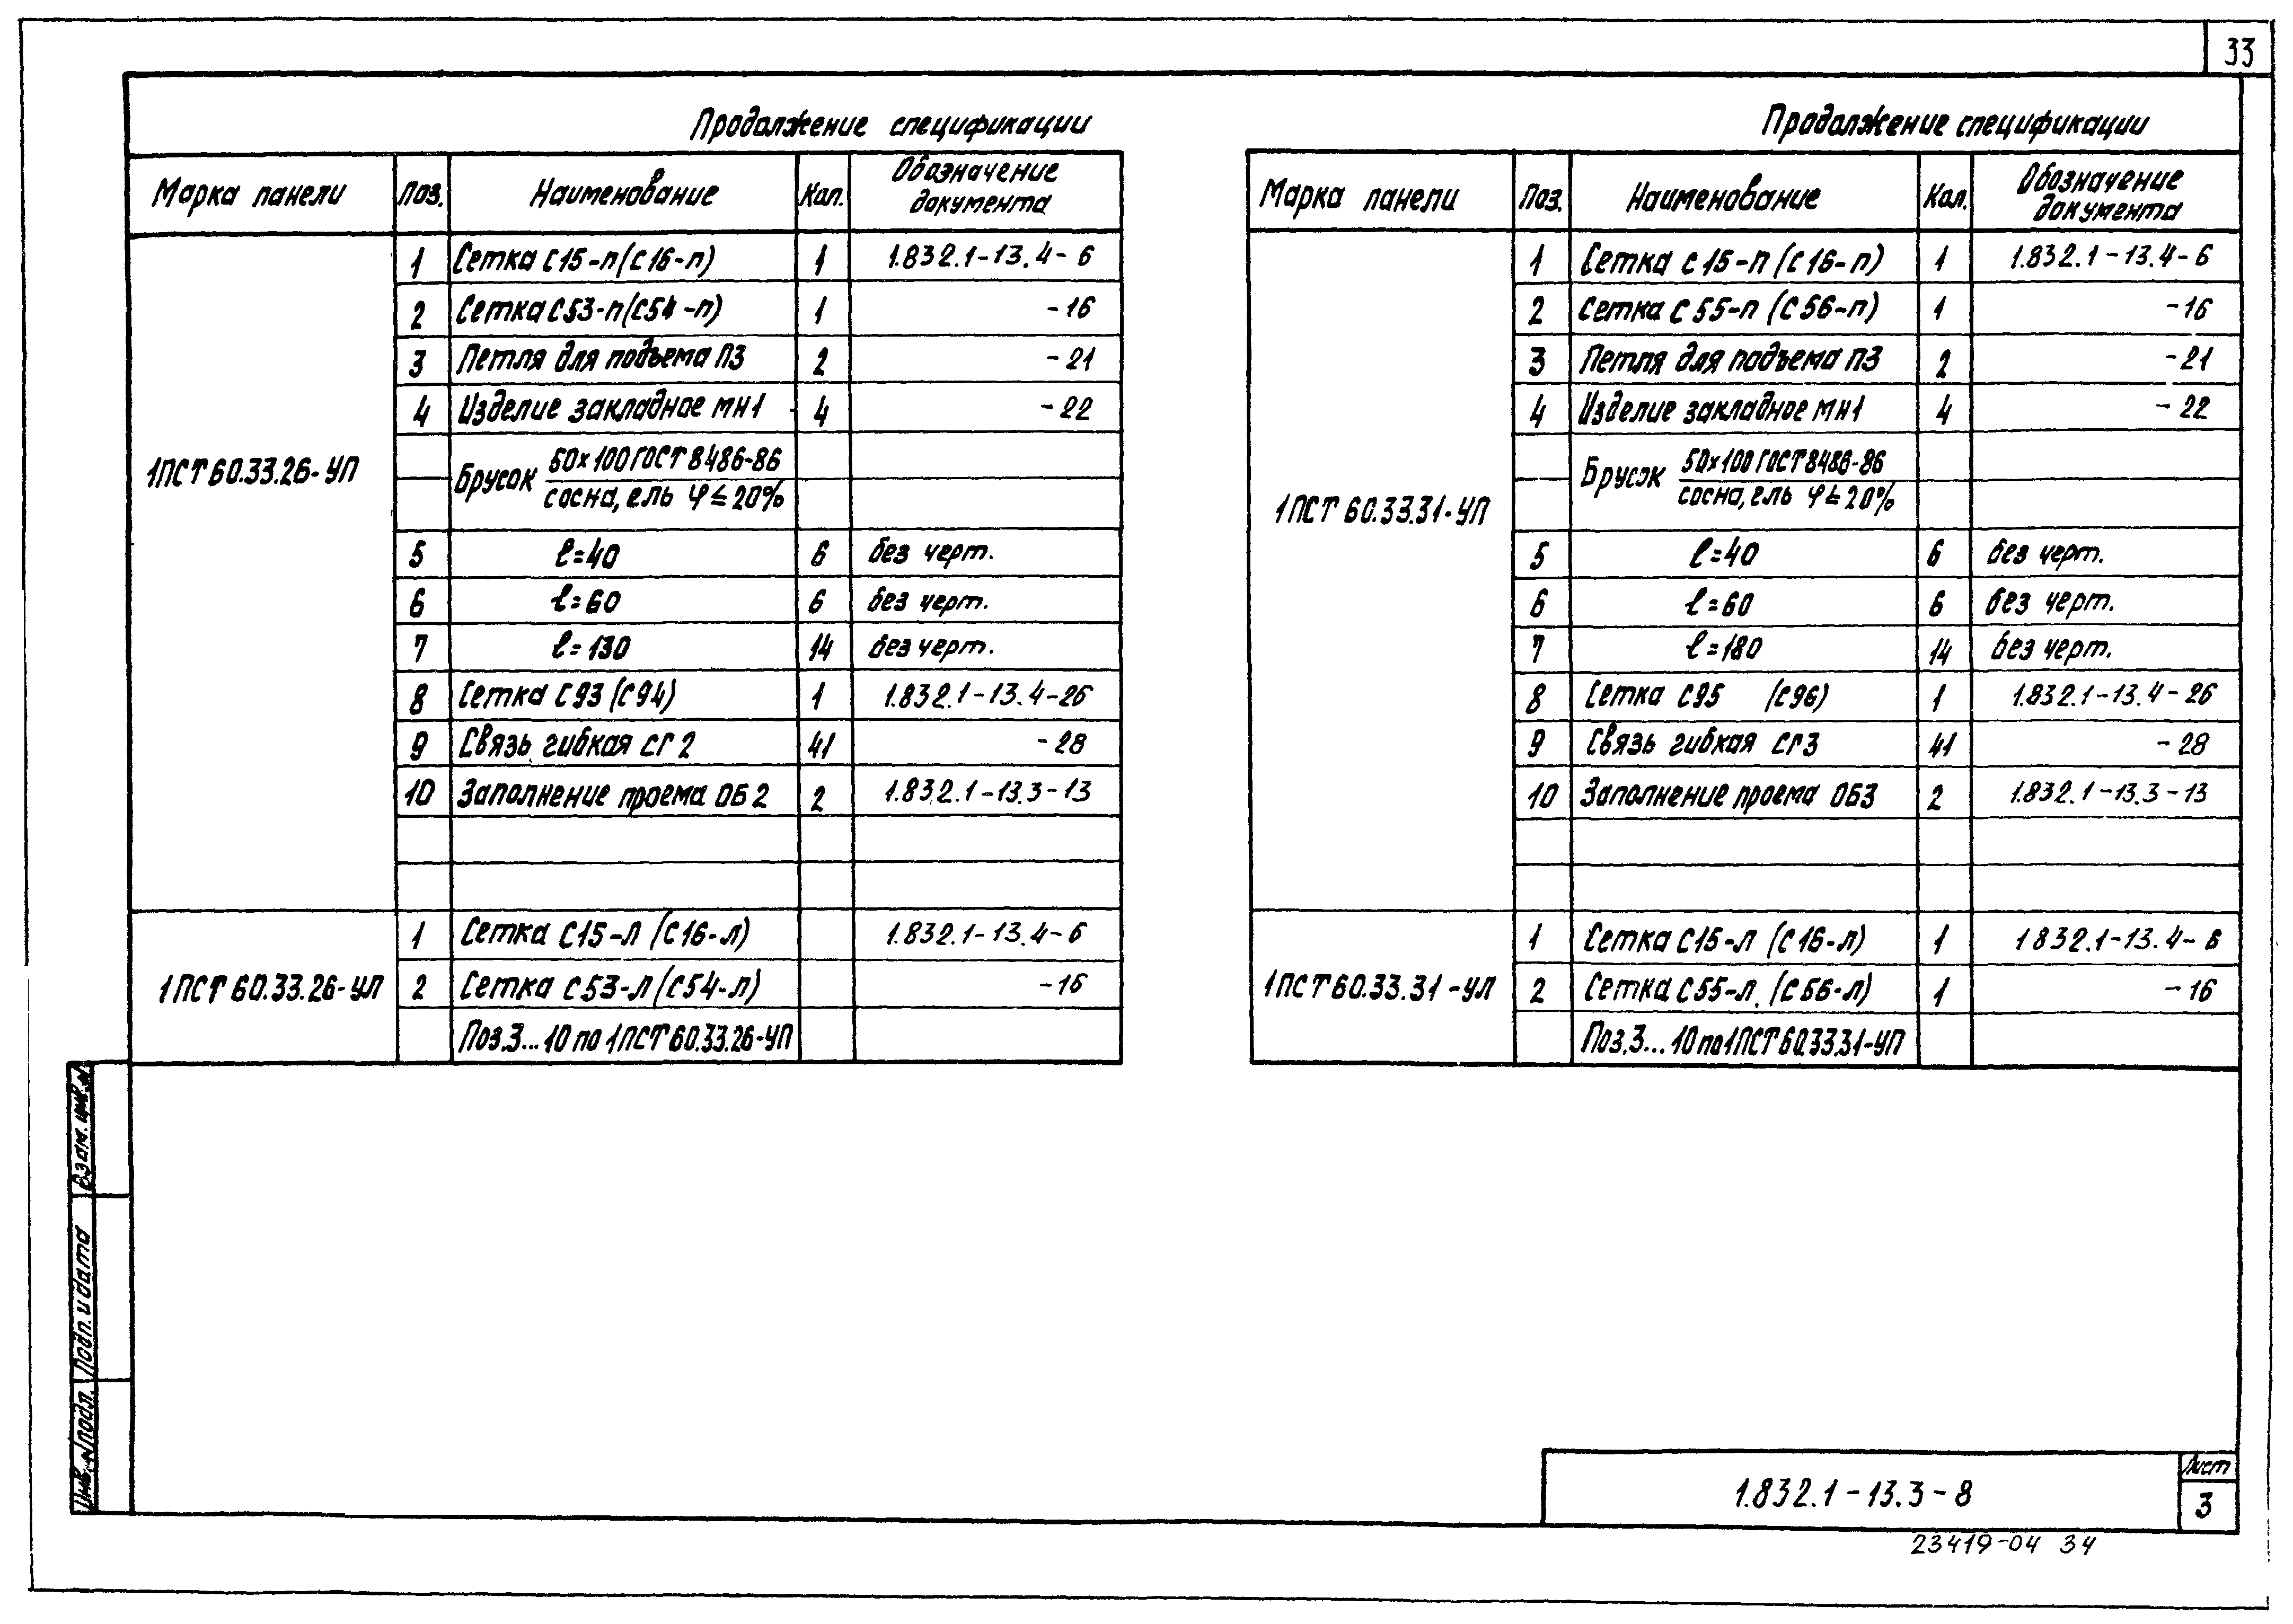 33
Продолжение спецификации
Марка панели Поз. Наименование Кол. Обозначение документа
1ПСТ 60.33.26-УП
1 Сетка С15-п (С16-п) 1 1.832.1-13.4-6
2 Сетка С53-п (С54-п) 1 -16
3 Петля для подъема П3 2 -21
4 Изделие закладное МН1 4 -22
Брусок 50х100 ГОСТ 8486-86
сосна, ель φ ≤ 20%
5 ℓ=40 6 без черт.
6 ℓ=60 6 без черт.
7 ℓ=130 14 без черт.
8 Сетка С93 (С94) 1 1.832.1-13.4-26
9 Связь гибкая СГ2 41 -28
10 Заполнение проема ОБ2 2 1.832.1-13.3-13
1ПСТ 60.33.26-УЛ
1 Сетка С15-л (С16-л) 1.832.1-13.4-6
2 Сетка С53-л (С54-л) -16
Поз.3...10 по 1ПСТ 60.33.26-УП
Продолжение спецификации
Марка панели Поз. Наименование Кол. Обозначение документа
1ПСТ 60.33.31-УП
1 Сетка С15-п (С16-п) 1 1.832.1-13.4-6
2 Сетка С55-п (С56-п) 1 -16
3 Петля для подъема П3 2 -21
4 Изделие закладное МН1 4 -22
Брусок 50х100 ГОСТ 8486-86
сосна, ель φ ≤ 20%
5 ℓ=40 6 без черт.
6 ℓ=60 6 без черт.
7 ℓ=180 14 без черт.
8 Сетка С95 (С96) 1 1.832.1-13.4-26
9 Связь гибкая СГ3 41 -28
10 Заполнение проема ОБ3 2 1.832.1-13.3-13
1ПСТ 60.33.31-УЛ
1 Сетка С15-л (С16-л) 1 1832.1-13.4-6
2 Сетка С55-л (С56-л) 1 -16
Поз.3...10 по 1ПСТ 60.33.31-УП
Взам. инв. №
Подп. и дата
Инв. № подл.
1.832.1-13.3-8
Лист
3
23419-04 34